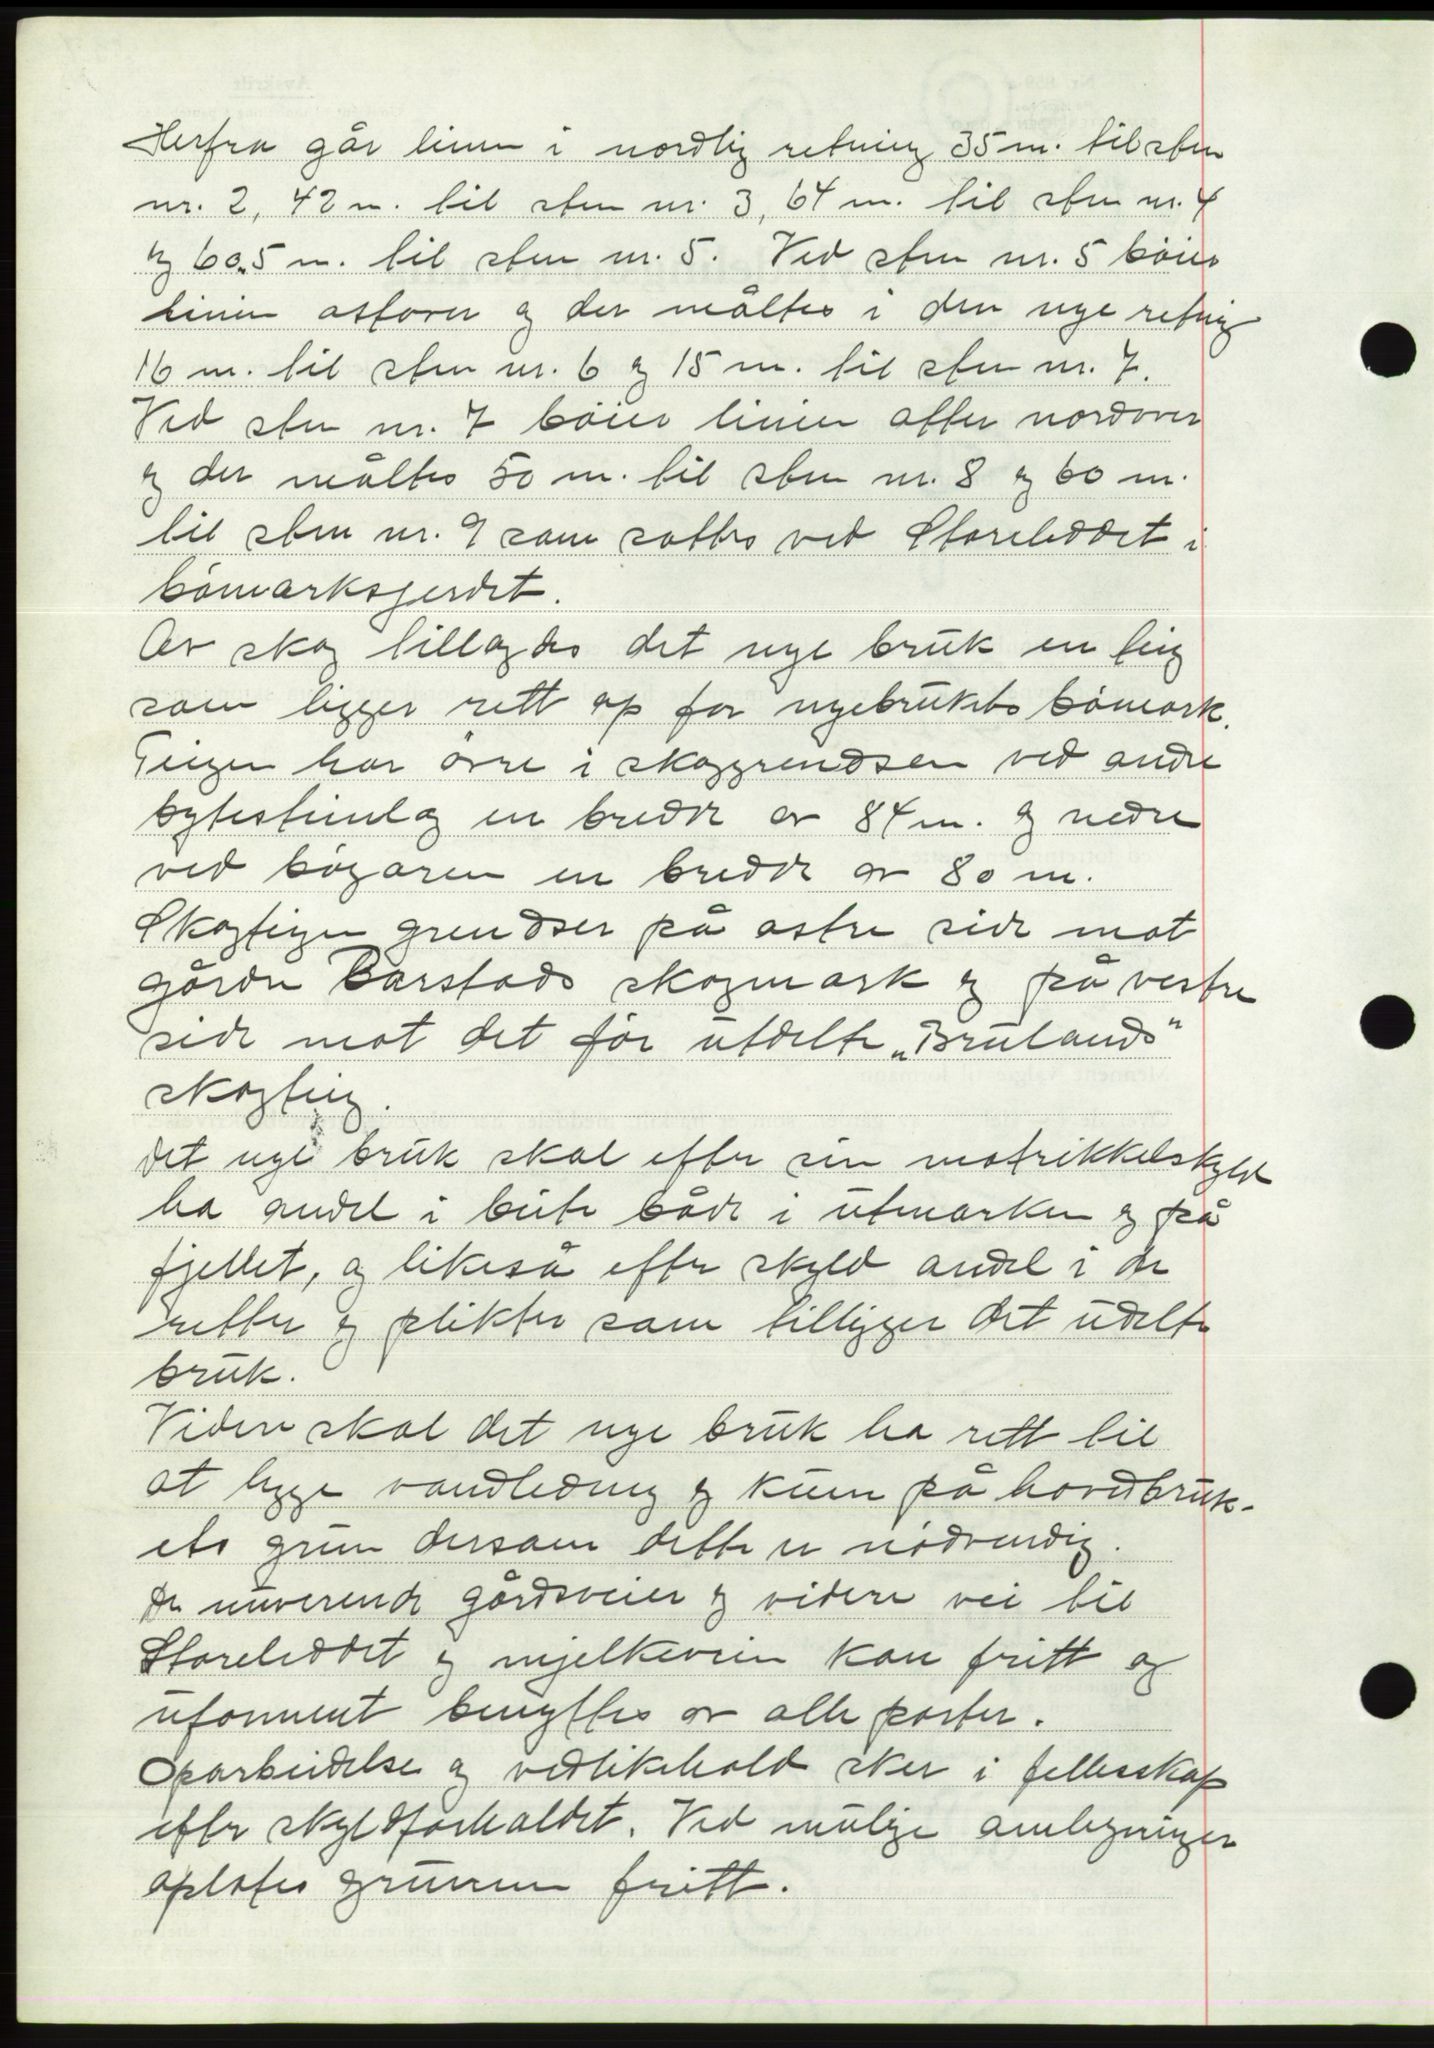 Herfra går linien i nordlig retning 35 m. til sten
nr. 2, 42 m. til sten nr. 3, 64 m. til sten nr. 4
og 60.5 m. til sten nr. 5. Ved sten nr. 5 böier
linien østover og der måltes i den nye retning
16 m. til sten nr. 6 og 15 m. til sten nr. 7.
Ved sten nr. 7 böier linien atter nordover
og der måltes 50 m. til sten nr. 8 og 60 m.
til sten nr. 9 som sattes ved Storeleddet i
bömarksgjerdet.
Av skog tillagdes det nye bruk en teig
som ligger rett op for nyebrukets bömark.
Teigen har övre i skoggrendsen ved andre
bytesteinlag en bredde av 84 m. og nedre
ved bögaren en bredde av 80 m.
Skogteigen grendser på østre side mot
gården Barstads skogmark og på vestre
side mot det för utdelte „Brulands"
skogteig.
Det nye bruk skal efter sin matrikkelskyld
ha andel i beite både i utmarken og på
fjellet, og likeså efter skyld andel i de
retter og plikter som tilligger det udelte
bruk.
Videre skal det nye bruk ha rett til
at legge vandledning og kum på hovedbruk-
ets grun dersom dette er nödvendig.
De nuverende gårdsveier og videre vei til
Storeleddet og mjelkeveien kan fritt og
uforment benyttes av alle parter.
Oparbeidelse og vedlikehold sker i fellesskap
efter skyldforholdet. Ved mulige omlegninger
oplates grunnen fritt.